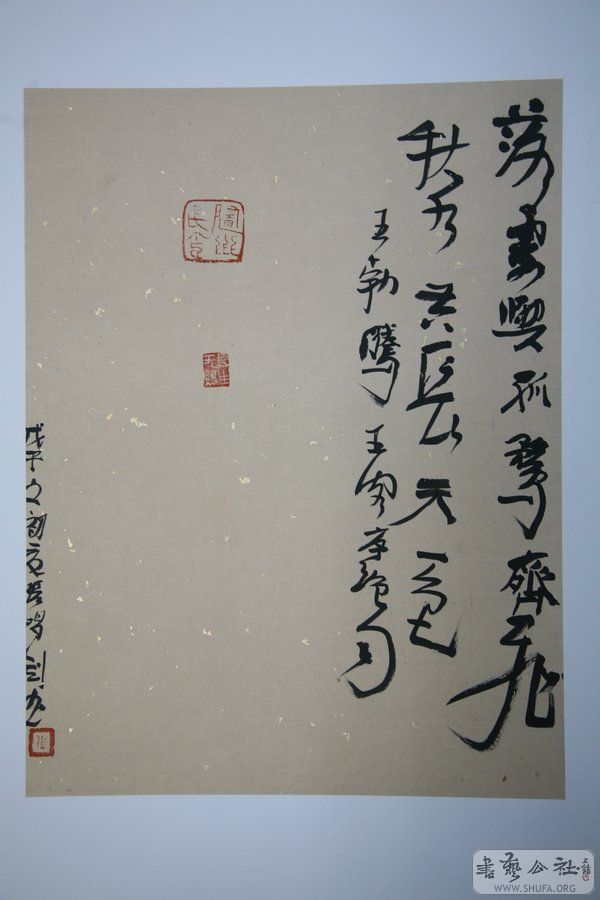 落霞與孤鶩齊飛
秋水共長天一色
王勃騰王閣序絶句
戊子之初夏
書藝公社
WWW.SHUFA.ORG